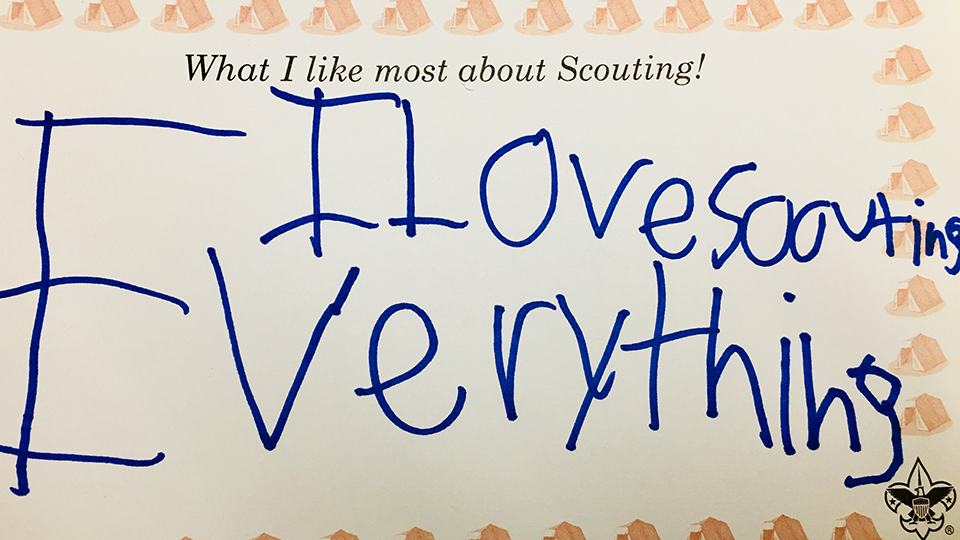 What I like most about Scouting!
I Love scouting
Everything
®